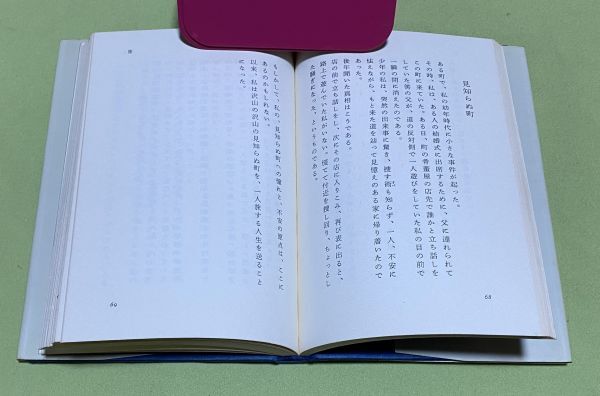 見知らぬ町
ある町で、私の幼年時代に小さな事件が起った。
その時、私は、ある人の結婚式に出席するために、父に連れられて
この町に来ていた。ある日、町の骨董屋の店先で誰かと立ち話しを
していた筈の父が、道の反対側で一人遊びをしていた私の目の前で
一瞬の間に消えたのである。
少年の私は、突然の出来事に驚き、捜す術も知らず、一人、不安に
怯えながら、もと来た道を辿って見憶えのある家に帰り着いたので
あった。
後年聞いた真相はこうである。
店の前で立ち話しをし、次にその店に入りこみ、再び表に出ると、
路上で遊んでいた私がいない。慌てて付近を捜し回り、ちょっとし
た騒ぎになった、というものである。
68
もしかして、私の、見知らぬ町への憧れと、不安の原点は、ここに
あるのかもしれない。
以来、私は沢山の沢山の見知らぬ町を、一人旅する人生を送ること
になった。
69